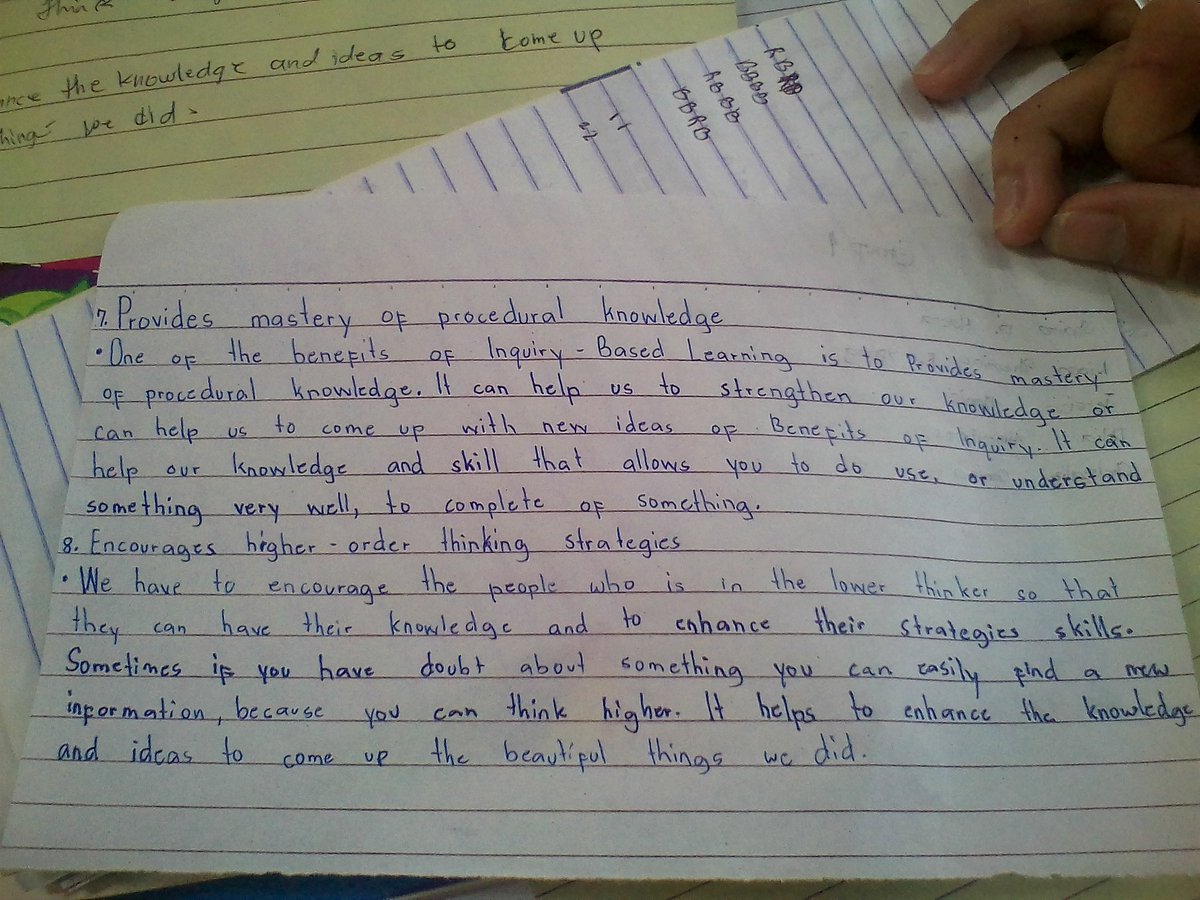 ance the knowledge and ideas to come up
things we did.
RBRB
BBBB
RBBB
BBRB
7. Provides mastery of procedural knowledge
• One of the benefits of Inquiry-Based Learning is to Provides mastery
of procedural knowledge. It can help us to strengthen our knowledge or
can help us to come up with new ideas of Benefits of Inquiry. It can
help our knowledge and skill that allows you to do use, or understand
something very well, to complete of something.
8. Encourages higher-order thinking strategies
• We have to encourage the people who is in the lower thinker so that
they can have their knowledge and to enhance their strategies skills.
Sometimes if you have doubt about something you can easily find a new
information, because you can think higher. It helps to enhance the knowledge
and ideas to come up the beautiful things we did.